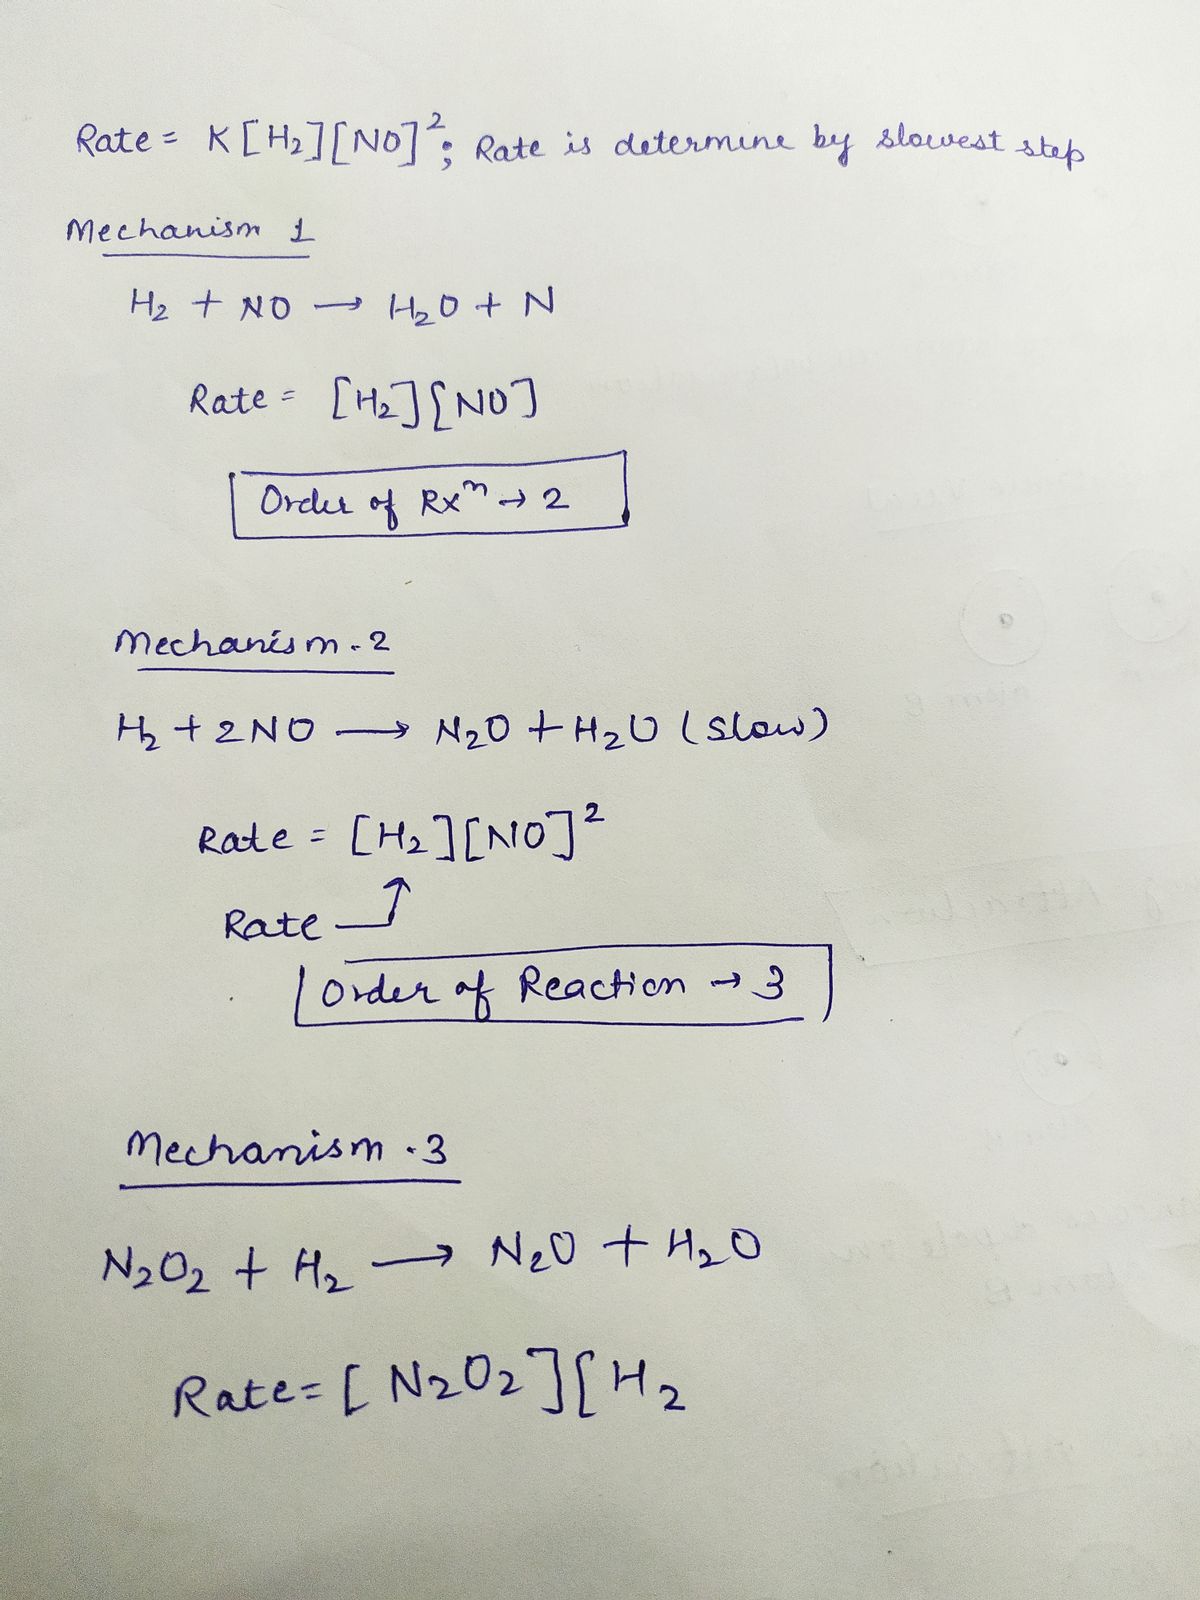 Rate = K[H₂][NO]²; Rate is determine by slowest step
Mechanism 1
H₂ + NO → H₂O + N
Rate = [H₂][NO]
Order of Rxⁿ → 2
Mechanism.2
H₂ + 2NO → N₂O + H₂O (slow)
Rate = [H₂][NO]²
Rate
Order of Reaction → 3
Mechanism.3
N₂O₂ + H₂ → N₂O + H₂O
Rate = [N₂O₂][H₂